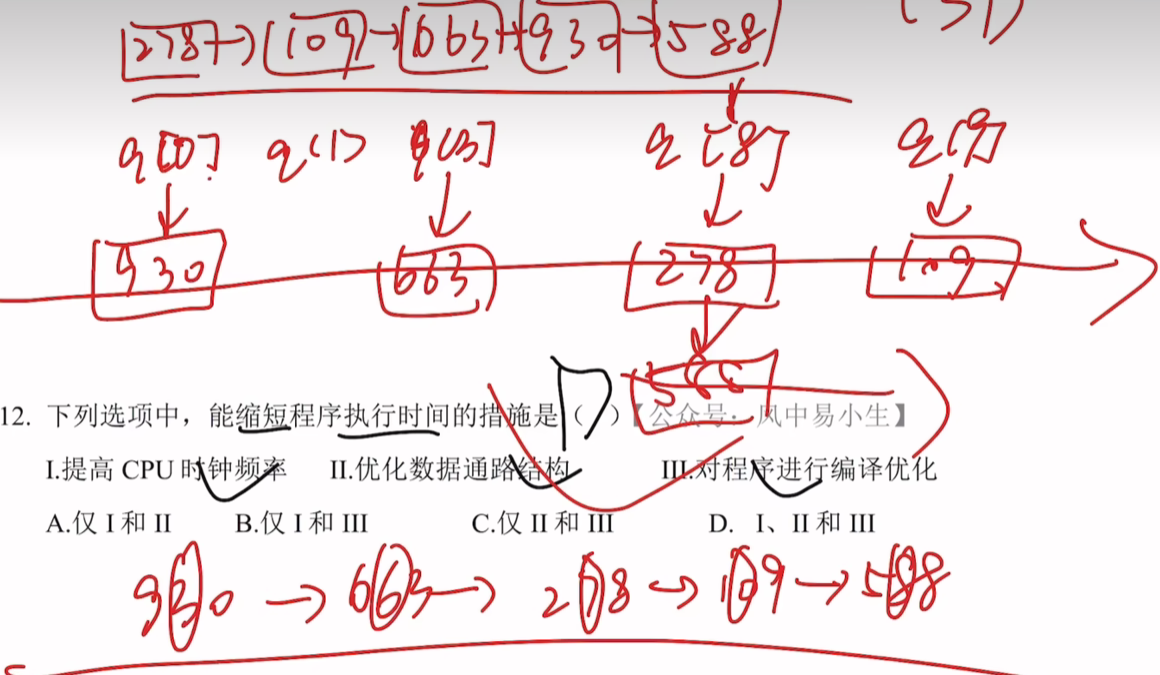 278→109→663→930→588
q[0] q(1) q[3] q[8] q[9]
930 663 278 109
12. 下列选项中，能缩短程序执行时间的措施是（D）【公众号：风中易小生】
I.提高 CPU 时钟频率 II.优化数据通路结构 III.对程序进行编译优化
A.仅 I 和 II B.仅 I 和 III C.仅 II 和 III D. I、II 和 III
930 → 663 → 278 → 109 → 588